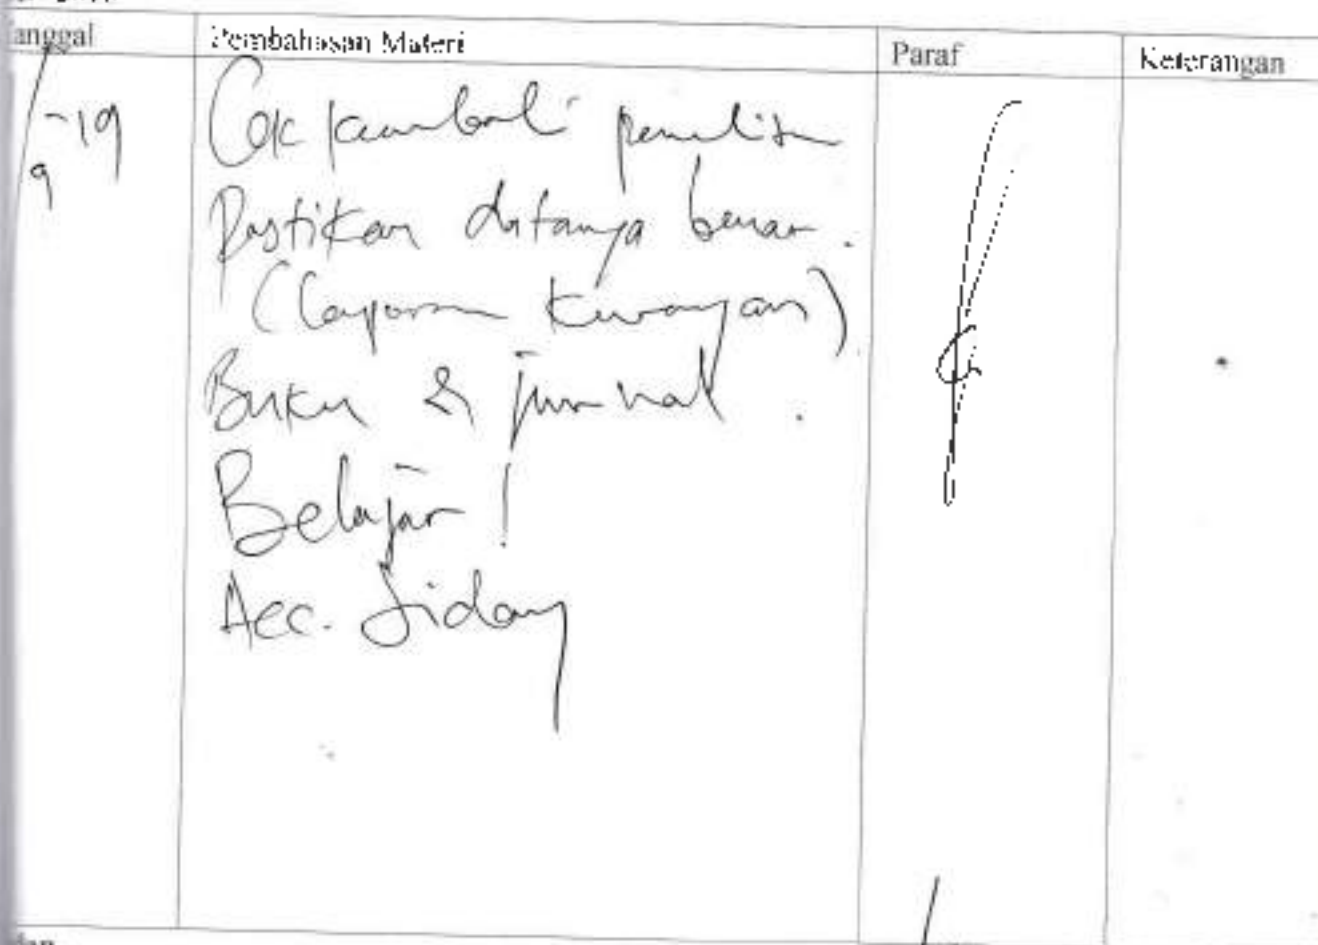 anggal Pembahasan Materi Paraf Keterangan
/9-19 Cek kembali penulisan
Pastikan datanya benar.
(Laporan Keuangan)
Buku & jurnal.
Belajar!
Acc. Sidang